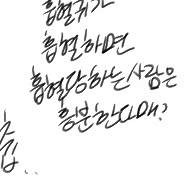 흡혈귀가
흡혈하면
흡혈당하는사람은
흥분한다매?
츄
릅..